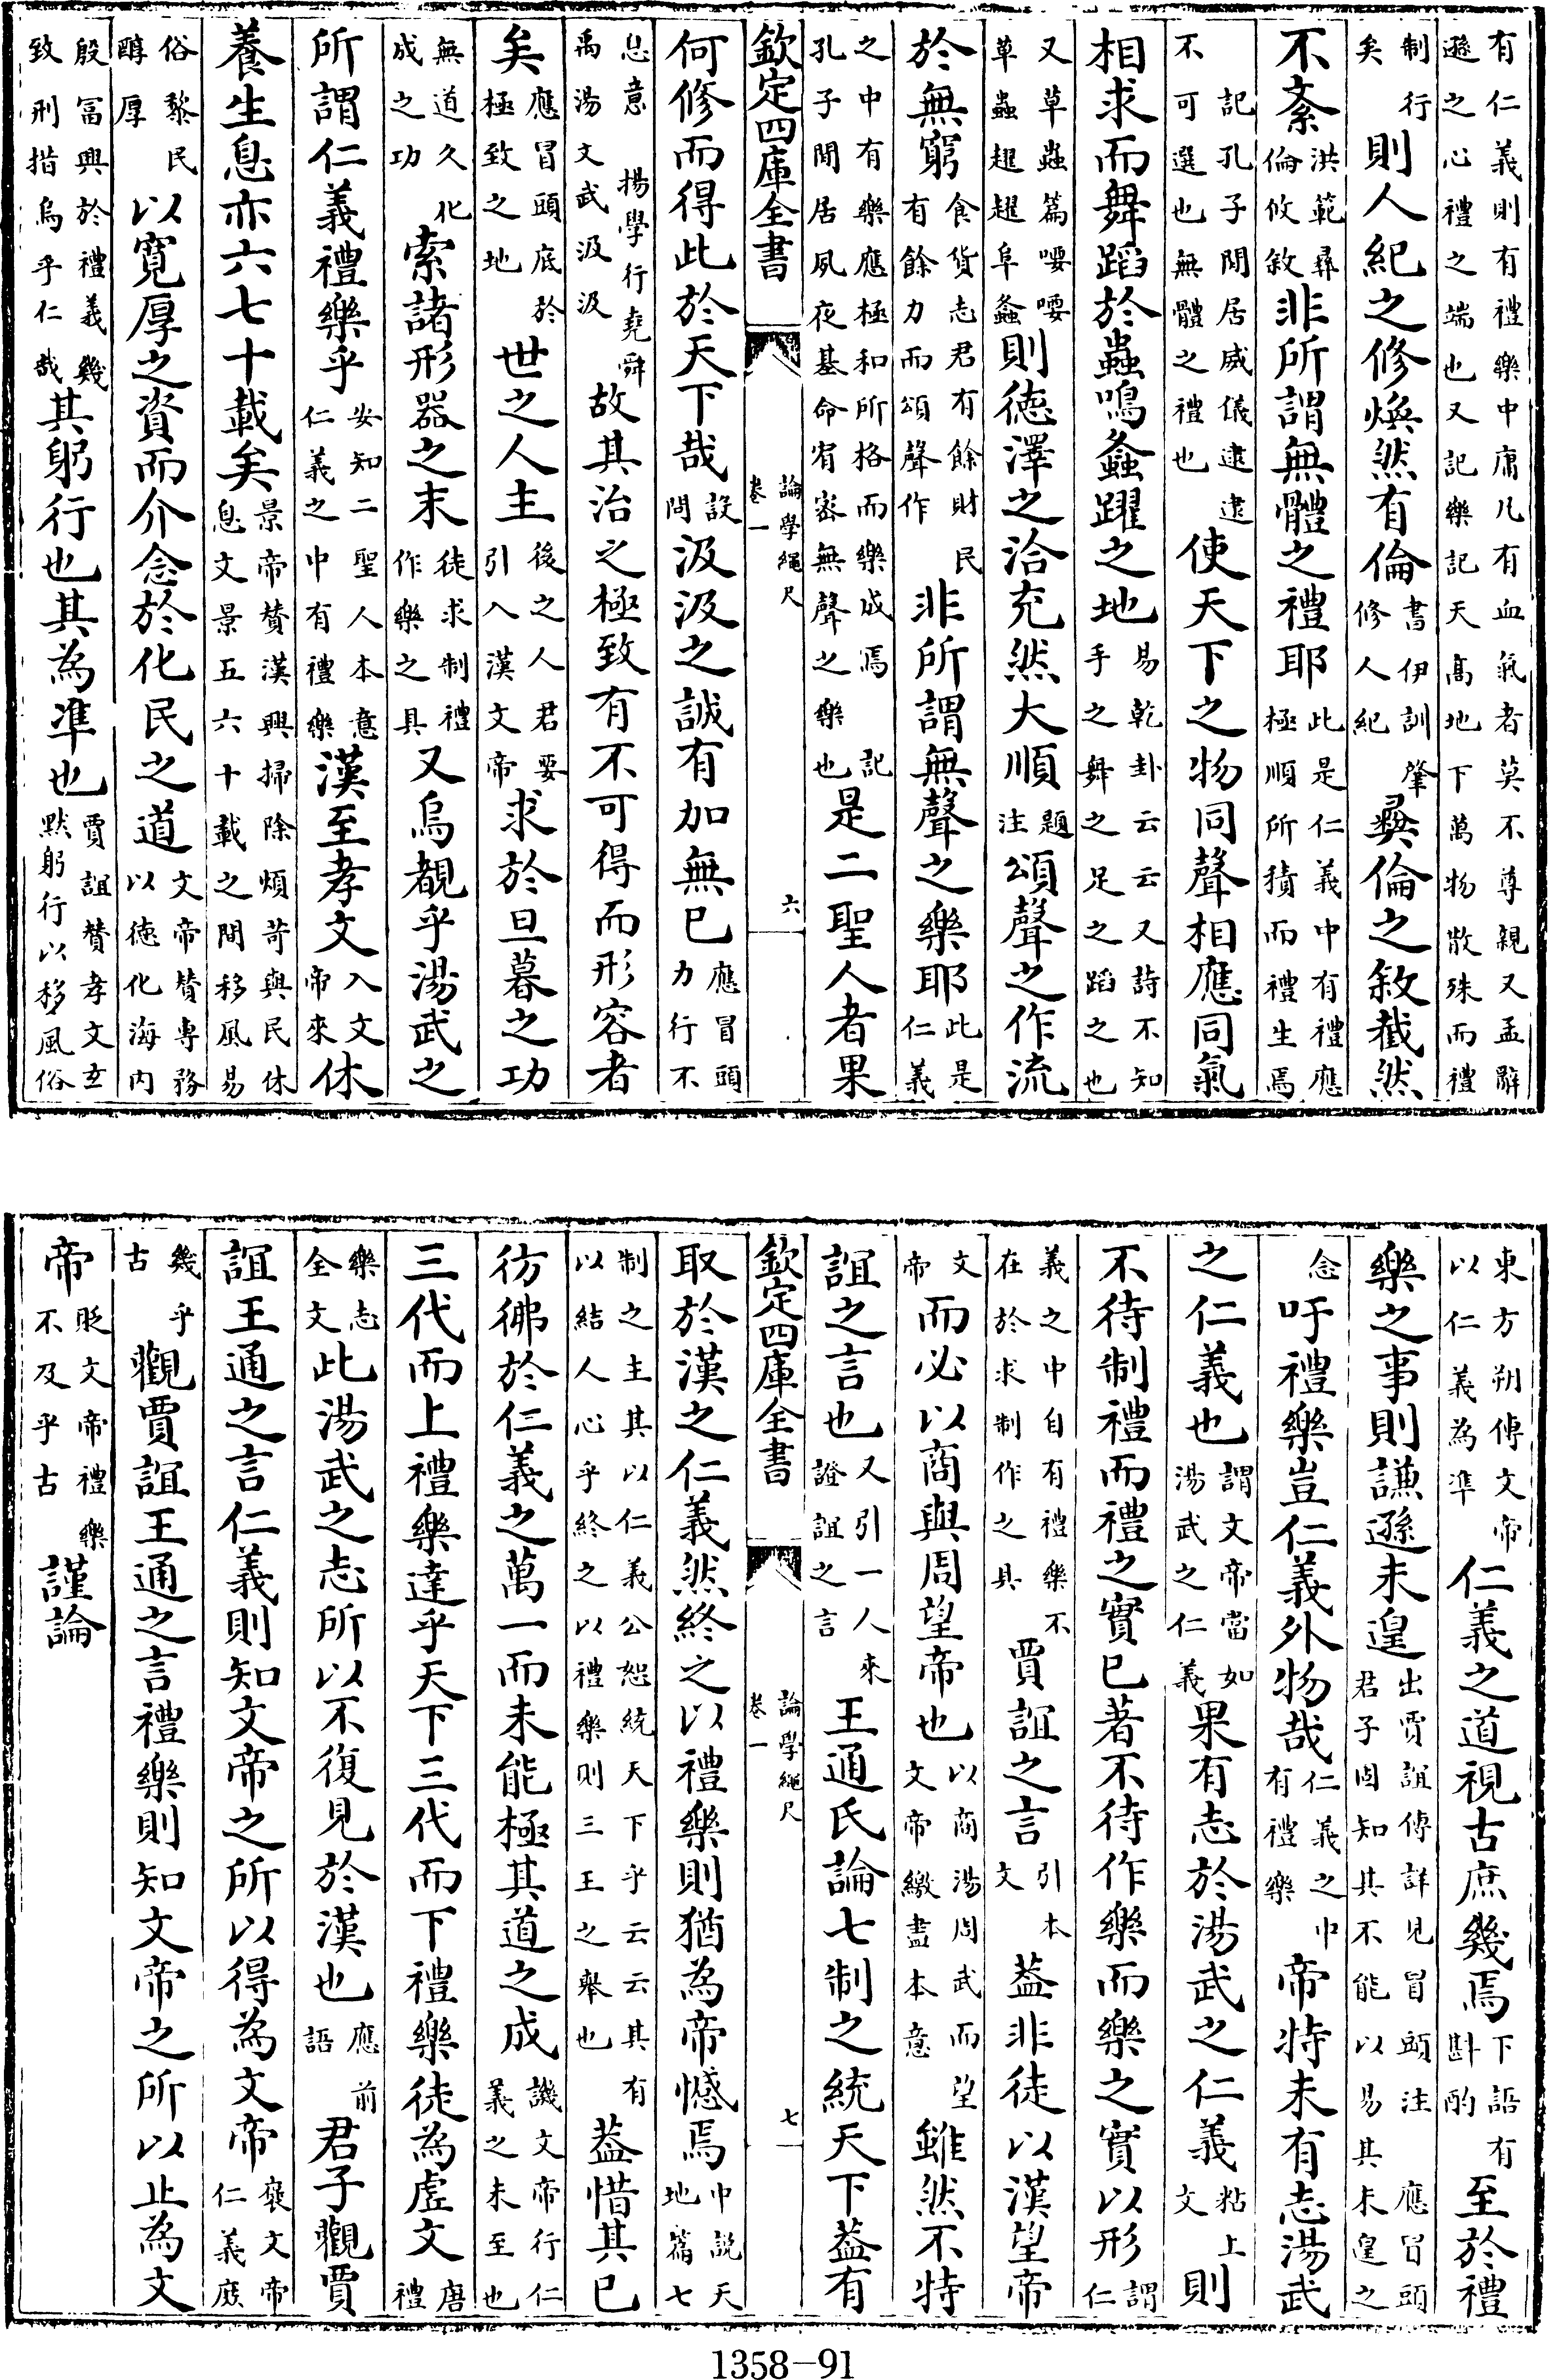 有仁義則有禮樂中庸凡有血氣者莫不尊親又孟辭
遜之心禮之端也又記樂記天髙地下萬物散殊而禮
制行矣則人紀之修煥然有倫書伊訓肇修人紀彛倫之敘截然
不紊洪範彛倫攸敘非所謂無體之禮耶此是仁義中有禮應極順所積而禮生焉
記孔子閒居威儀逮逮不可選也無體之禮也使天下之物同聲相應同氣
相求而舞蹈於蟲鳴螽躍之地易乾卦云云又詩不知手之舞之足之蹈之也
又草蟲篇喓喓草蟲趯趯阜螽則徳澤之洽充然大順題注頌聲之作流
於無窮食貨志君有餘財民有餘力而頌聲作非所謂無聲之樂耶此是仁義
之中有樂應極和所格而樂成焉記孔子閒居夙夜基命宥密無聲之樂也是二聖人者果
欽定四庫全書
論學繩尺
卷一
六
何修而得此於天下哉設問汲汲之誠有加無已應冒頭力行不
息意揚學行堯舜禹湯文武汲汲故其治之極致有不可得而形容者
矣應冒頭底於極致之地世之人主後之人君要引入漢文帝求於旦暮之功
無道久化成之功索諸形器之末徒求制禮作樂之具又烏覩乎湯武之
所謂仁義禮樂乎安知二聖人本意仁義之中有禮樂漢至孝文入文帝來休
養生息亦六七十載矣景帝賛漢興掃除煩苛與民休息文景五六十載之間移風易
俗黎民醇厚以寛厚之資而介念於化民之道文帝賛專務以徳化海内
殷富興於禮義幾致刑措烏乎仁哉其躬行也其為凖也賈誼賛孝文玄默躬行以移風俗
東方朔傳文帝以仁義為凖仁義之道視古庶幾焉下語有斟酌至於禮
樂之事則謙遜未遑出賈誼傳詳見冒頭注君子固知其不能以易其未遑之
應冒頭念吁禮樂豈仁義外物哉仁義之中有禮樂帝特未有志湯武
之仁義也謂文帝當如湯武之仁義果有志於湯武之仁義粘上文則
不待制禮而禮之實已著不待作樂而樂之實以形謂仁
義之中自有禮樂不在於求制作之具賈誼之言引本文葢非徒以漢望帝
文帝而必以商與周望帝也以商湯周武而望文帝繳盡本意雖然不特
誼之言也又引一人來證誼之言王通氏論七制之統天下葢有
欽定四庫全書
論學繩尺
卷一
七
取於漢之仁義然終之以禮樂則猶為帝憾焉中説天地篇七
制之主其以仁義公恕統天下乎云云其有以結人心乎終之以禮樂則三王之舉也葢惜其已
彷彿於仁義之萬一而未能極其道之成譏文帝行仁義之未至也
三代而上禮樂達乎天下三代而下禮樂徒為虛文唐禮
樂志全文此湯武之志所以不復見於漢也應前語君子觀賈
誼王通之言仁義則知文帝之所以得為文帝襃文帝仁義庶
幾乎古觀賈誼王通之言禮樂則知文帝之所以止為文
帝貶文帝禮樂不及乎古謹論
1358-91